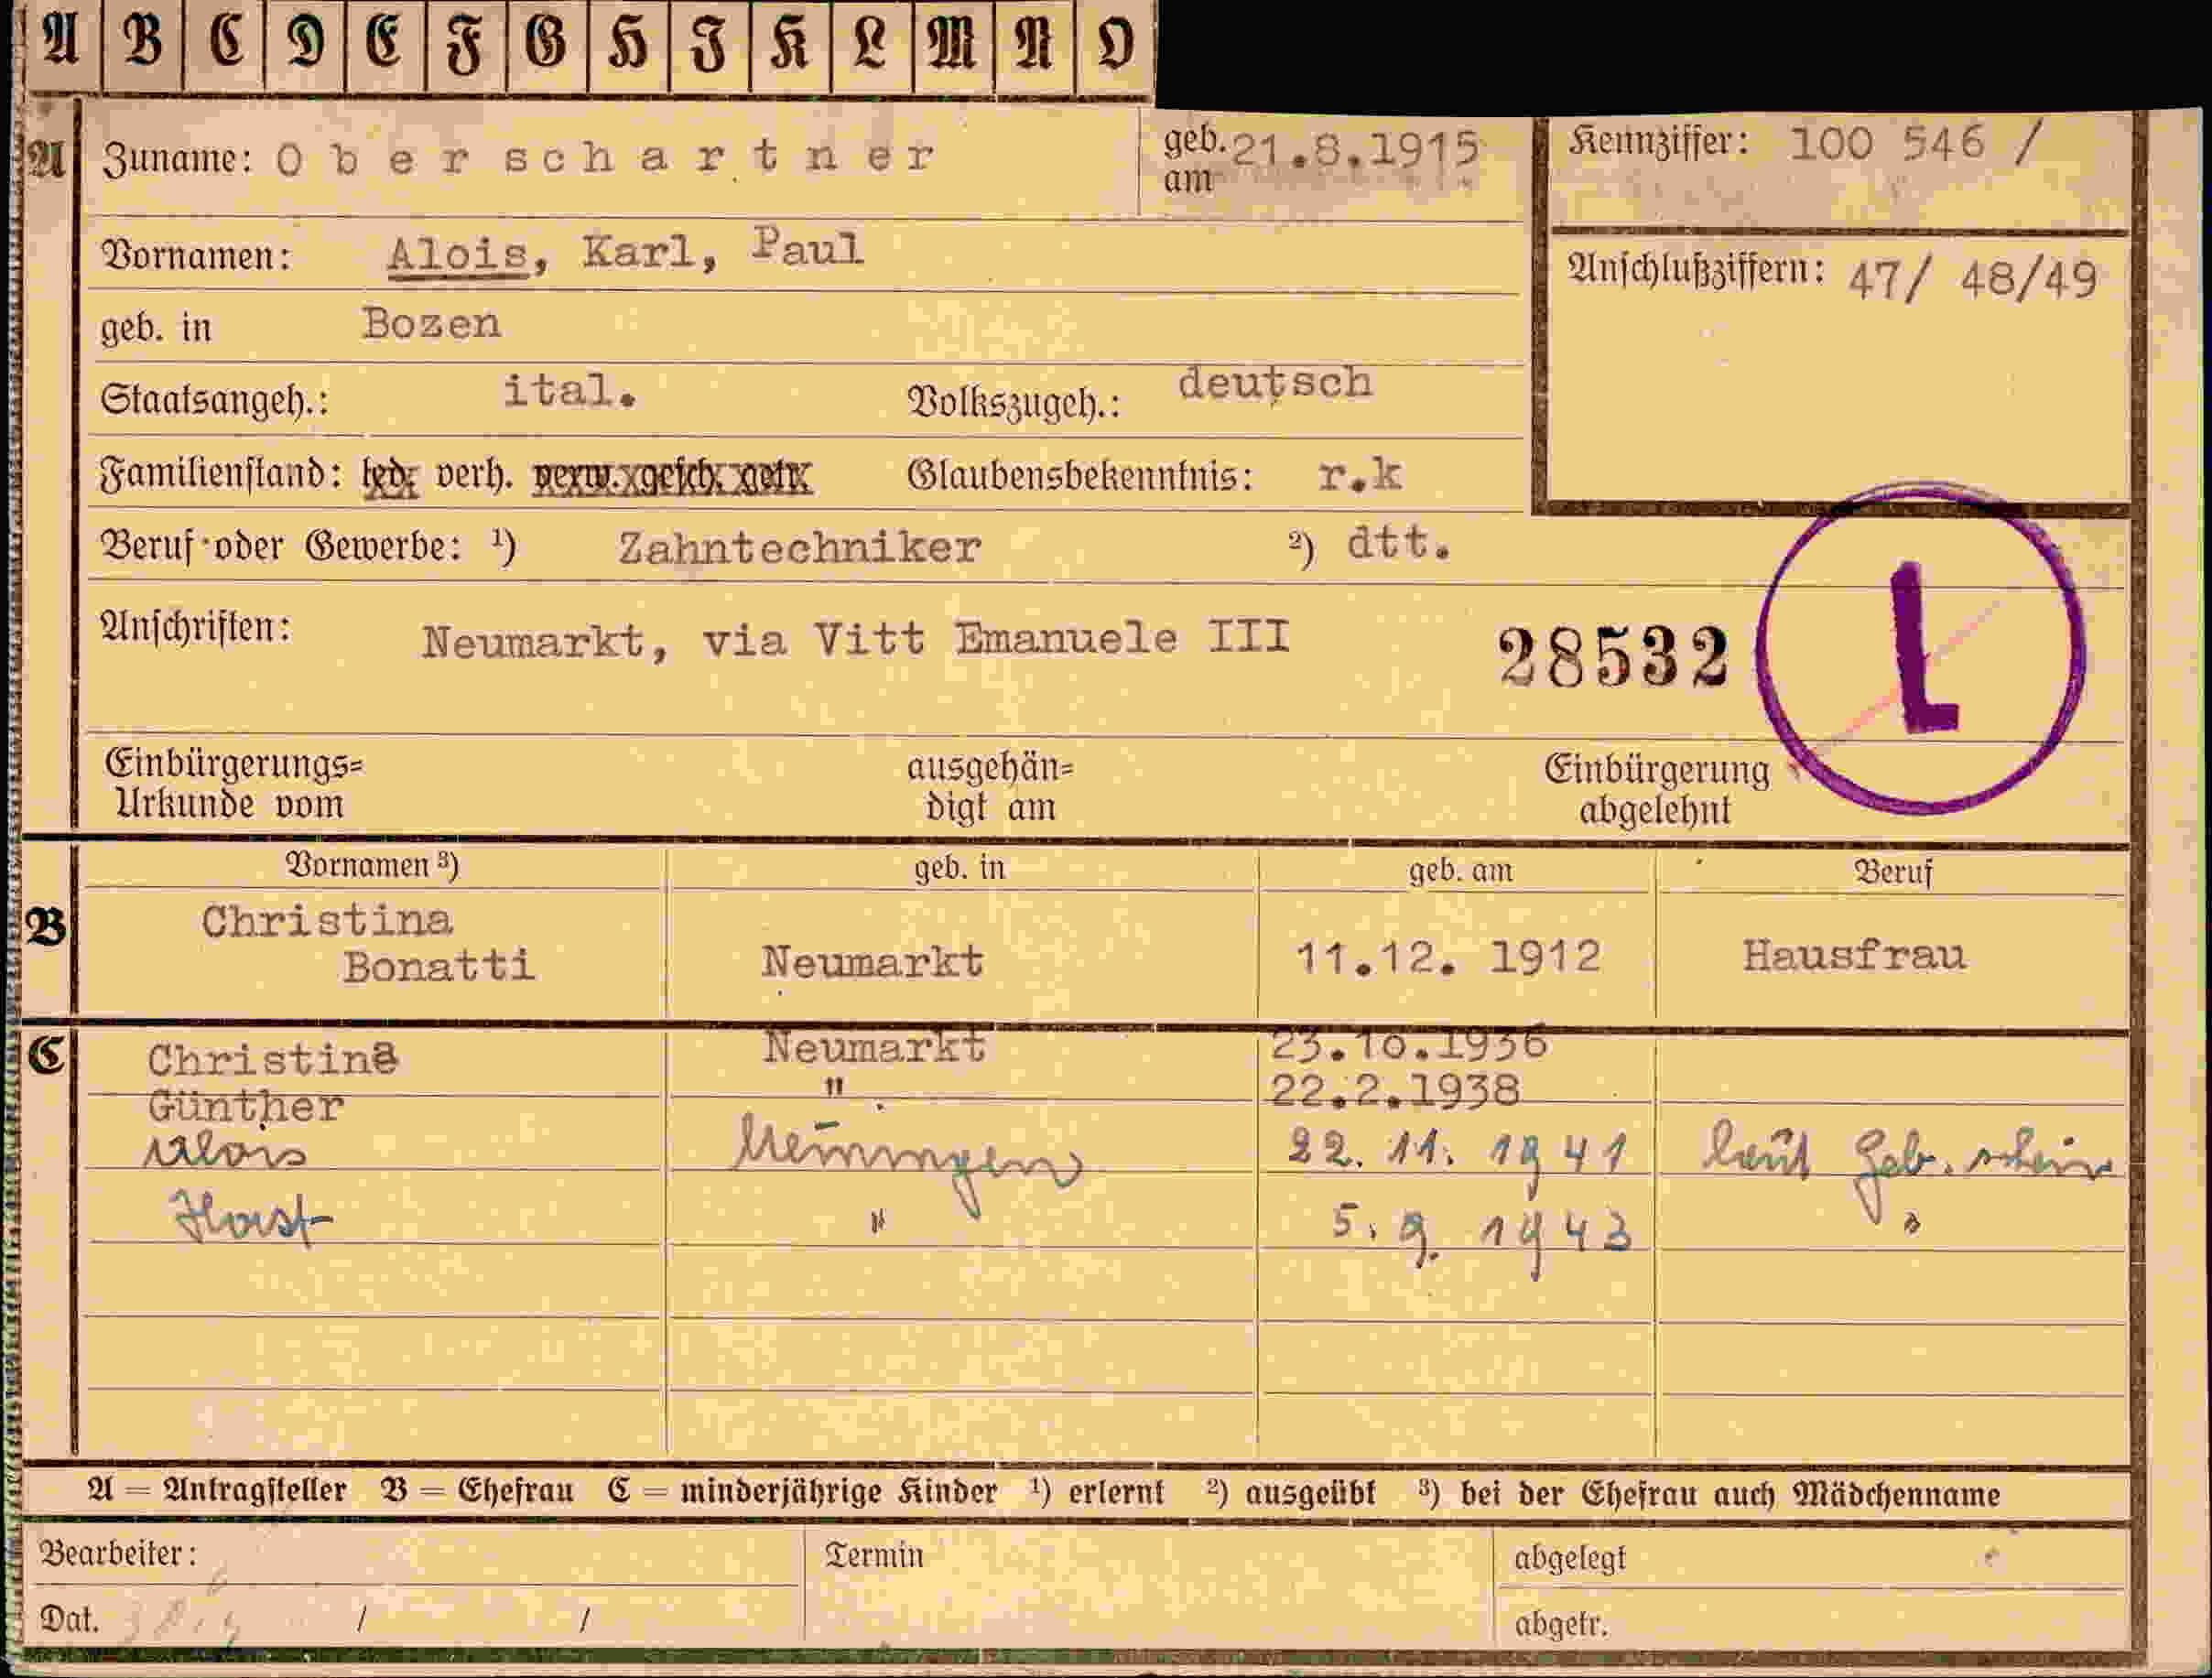 A B C D E F G H J K L M N O
A Zuname: Oberschartner geb. am 21.8.1915 Kennziffer: 100 546 /
Vornamen: Alois, Karl, Paul Anschlußziffern: 47/ 48/49
geb. in Bozen
Staatsangeh.: ital. Volkszugeh.: deutsch
Familienstand: led. verh. verw. gesch. getr. Glaubensbekenntnis: r.k
Beruf oder Gewerbe: ¹) Zahntechniker ²) dtt.
Anschriften: Neumarkt, via Vitt Emanuele III 28532 L
Einbürgerungs= ausgehän= Einbürgerung
Urkunde vom digt am abgelehnt
Vornamen ³) geb. in geb. am Beruf
B Christina
Bonatti Neumarkt 11.12. 1912 Hausfrau
C Christina Neumarkt 23.10.1936
Günther " 22.2.1938
Alois Memmingen 22. 11. 1941 laut Geb. schein
Horst " 5. 9. 1943 "
A = Antragsteller B = Ehefrau C = minderjährige Kinder ¹) erlernt ²) ausgeübt ³) bei der Ehefrau auch Mädchenname
Bearbeiter: Termin abgelegt
Dat. / / abgetr.